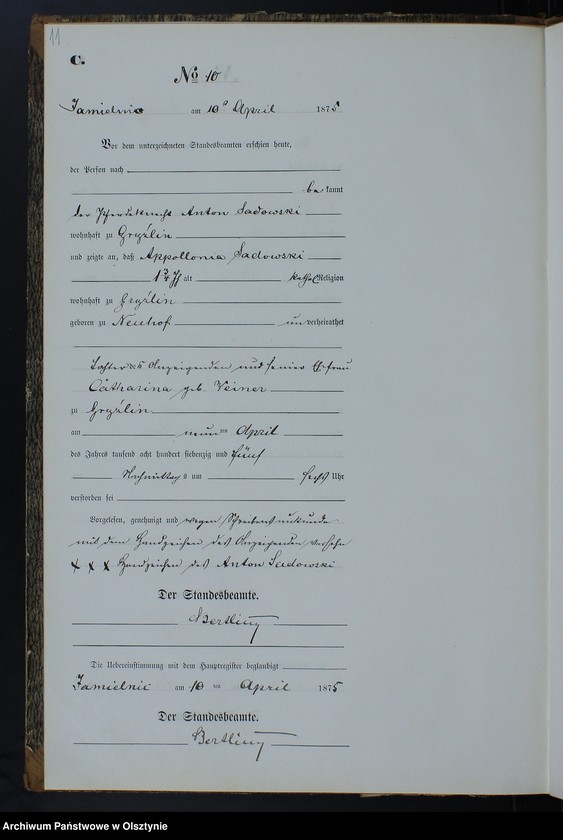 11
C.
No 10
Jamielnic am 10 April 1875
Vor dem unterzeichneten Standesbeamten erschien heute,
der Person nach
bekannt
der Pferdeknecht Anton Sadowski
wohnhaft zu Gryźlin
und zeigte an, daß Appollonia Sadowski
1 3/4 J alt kathol Religion
wohnhaft zu Gryźlin
geboren zu Neuhof unverheirathet
Tochter des Anzeigenden und seiner Ehefrau
Catharina geb.
zu Gryźlin
am neunten April
des Jahres tausend acht hundert siebenzig und fünf
Nachmittags um sechs Uhr
verstorben sei
Vorgelesen, genehmigt und wegen Schreibensunkunde
mit dem Handzeichen des Anzeigenden versehn
x x x Handzeichen des Anton Sadowski
Der Standesbeamte.
Bertling
Die Uebereinstimmung mit dem Hauptregister beglaubigt
Jamielnic am 10 ten April 1875
Der Standesbeamte.
Bertling
Archiwum Państwowe w Olsztynie